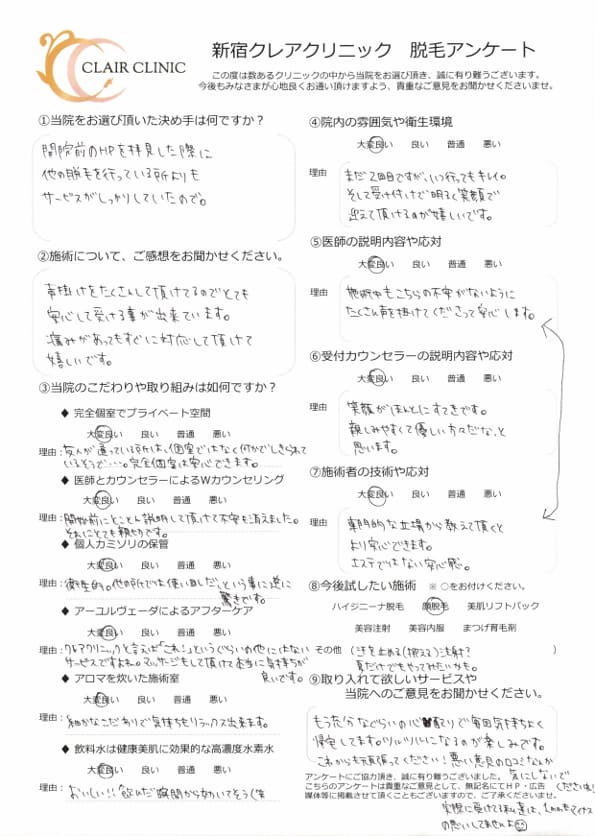 CLAIR CLINIC
新宿クレアクリニック　脱毛アンケート
この度は数あるクリニックの中から当院をお選び頂き、誠に有り難うございます。
今後もみなさまが心地良くお通い頂けますよう、貴重なご意見をお聞かせくださいませ。
①当院をお選び頂いた決め手は何ですか？
開院前のHPを拝見した際に
他の脱毛を行っている所よりも
サービスがしっかりしていたので。
②施術について、ご感想をお聞かせください。
声掛けをたくさんして頂けてるのでとても
安心して受ける事が出来ています。
痛みがあってもすぐに対応して頂けて
嬉しいです。
③当院のこだわりや取り組みは如何ですか？
◆ 完全個室でプライベート空間
大変良い　良い　普通　悪い
理由：友人が通っている所は、個室ではなく何かでしきられて
いるそうで…。完全個室は安心できます。
◆ 医師とカウンセラーによるWカウンセリング
大変良い　良い　普通　悪い
理由：開始前にとことん説明して頂けて不安も消えました。
それにとても親切です。
◆ 個人カミソリの保管
大変良い　良い　普通　悪い
理由：衛生的。他の所では使い回しだ、という事に逆に
驚きです。
◆ アーユルヴェーダによるアフターケア
大変良い　良い　普通　悪い
理由：クレアクリニックと言えば「これ！」というぐらいの他にはない
サービスですよね。マッサージもして頂けて本当に気持ちが
良いです。
◆ アロマを炊いた施術室
大変良い　良い　普通　悪い
理由：細かなこだわりで気持ちもリラックス出来ます。
◆ 飲料水は健康美肌に効果的な高濃度水素水
大変良い　良い　普通　悪い
理由：おいしい!!飲んだ瞬間から効いてそう(笑
④院内の雰囲気や衛生環境
大変良い　良い　普通　悪い
理由　まだ2回目ですが、いつ行ってもキレイ。
そして受け付けで明るく笑顔で
迎えて頂けるのが嬉しいです。
⑤医師の説明内容や応対
大変良い　良い　普通　悪い
理由　施術中もこちらの不安がないように
たくさん声を掛けてくださって安心します。
⑥受付カウンセラーの説明内容や応対
大変良い　良い　普通　悪い
理由　笑顔がほんとにすてきです。
親しみやすくて優しい方々だな、と
思います。
⑦施術者の技術や応対
大変良い　良い　普通　悪い
理由　専門的な立場から教えて頂くと
より安心できます。
エステではない安心感。
⑧今後試したい施術　※ ○をお付けください。
ハイジニーナ脱毛　顔脱毛　美肌リフトバック
美容注射　美容内服　まつげ育毛剤
その他　（汗を止める(抑える)注射？
夏だけでもやってみたいかも。　）
⑨取り入れて欲しいサービスや
当院へのご意見をお聞かせください。
もう充分なぐらいの心配りで毎回気持ちよく
帰宅してます。ツルツルになるのが楽しみです。
これからも頑張ってください！悪い意見の口コミなんか
気にしないで
ください！
アンケートにご協力頂き、誠に有り難うございました。
こちらのアンケートは貴重なご意見として、無記名にてHP・広告
媒体等に掲載させて頂くこともございますので、ご了承くださいませ。
実際に受けてる私達は、1mmもマイナス
の思いしてませんよ